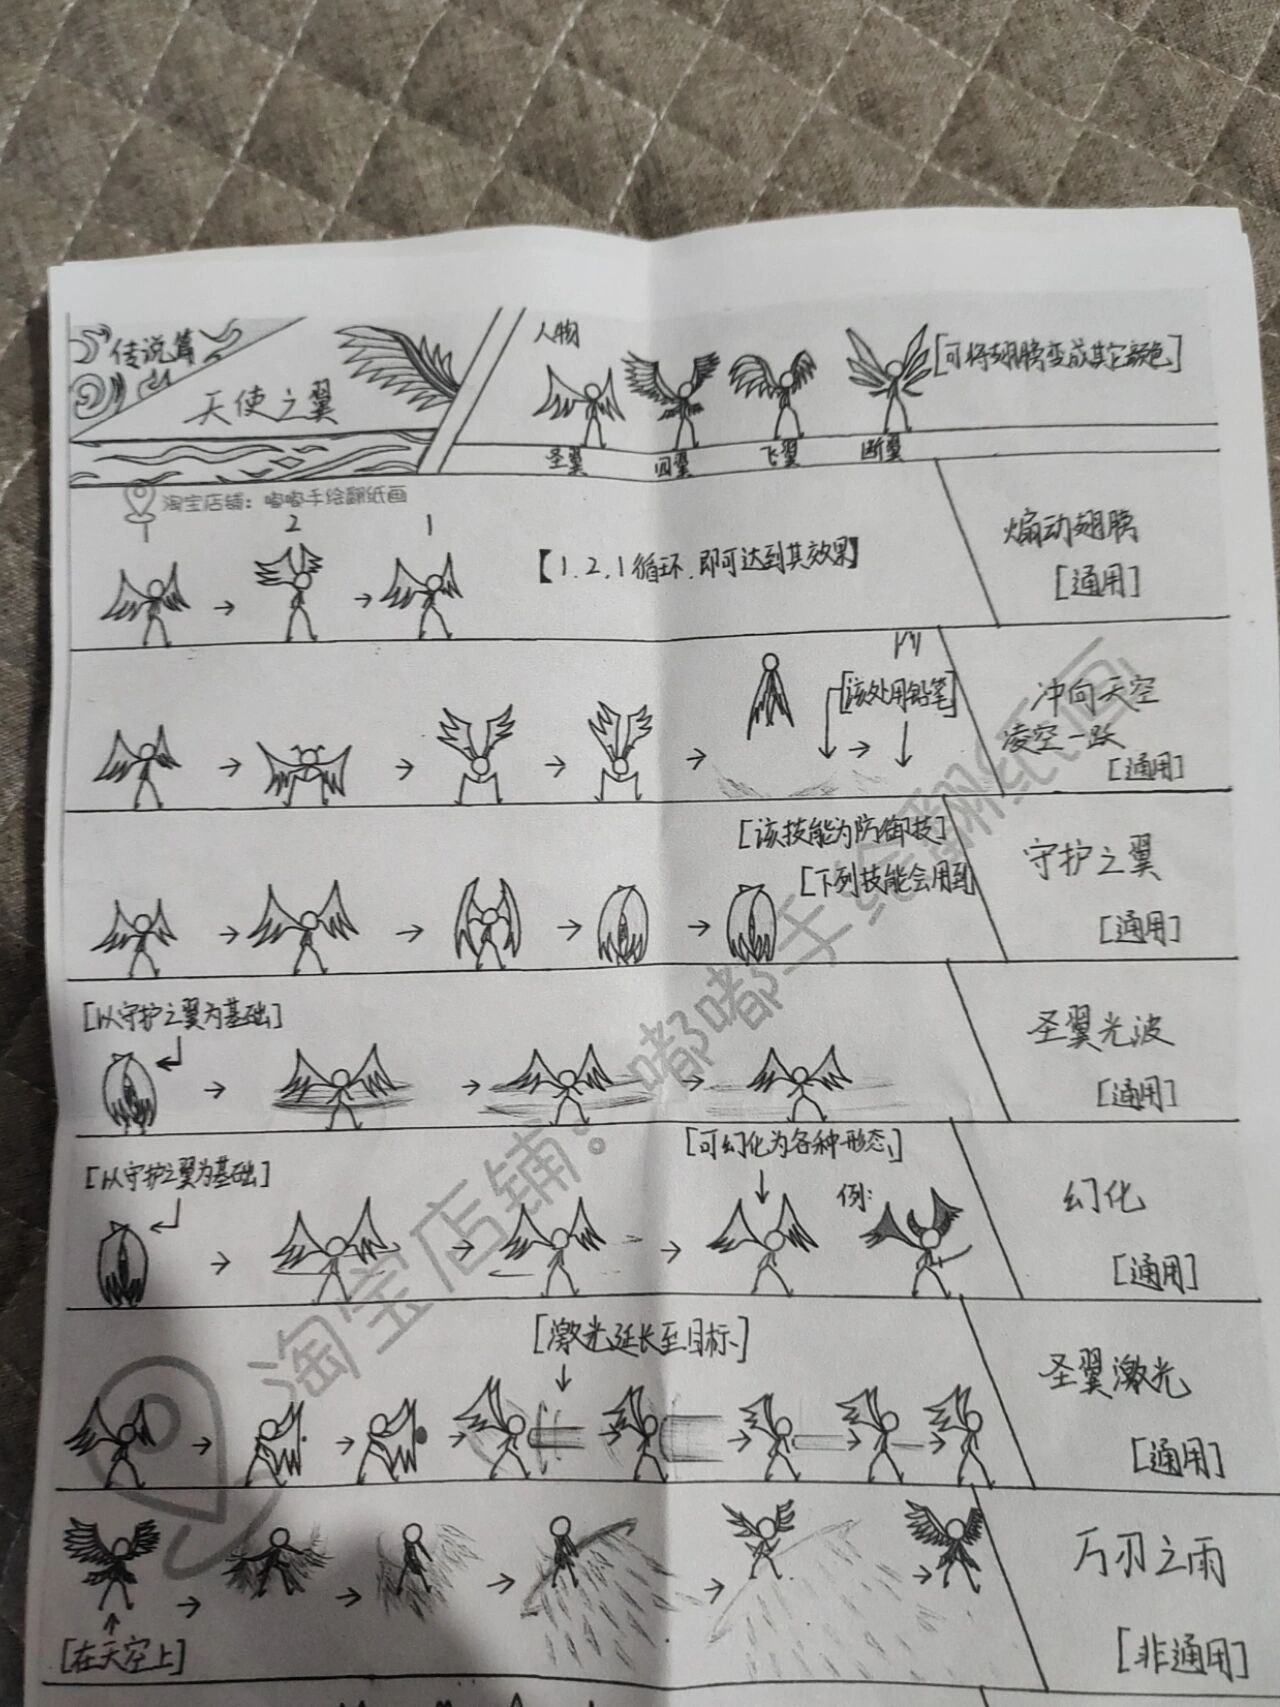 传说篇
天使之翼
人物
[可将翅膀变成其它颜色]
圣翼
飞翼
断翼
淘宝店铺：嘟嘟手绘翻纸画
2
1
【1.2.1循环.即可达到其效果】
煽动翅膀
[通用]
[该处用铅笔]
冲向天空
凌空一跃
[通用]
[该技能为防御技]
[下列技能会用到]
守护之翼
[通用]
[以守护之翼为基础]
圣翼光波
[通用]
[以守护之翼为基础]
[可幻化为各种形态]
例:
幻化
[通用]
[激光延长至目标]
圣翼激光
[通用]
[在天空上]
万刃之雨
[非通用]
淘宝店铺：嘟嘟手绘翻纸画